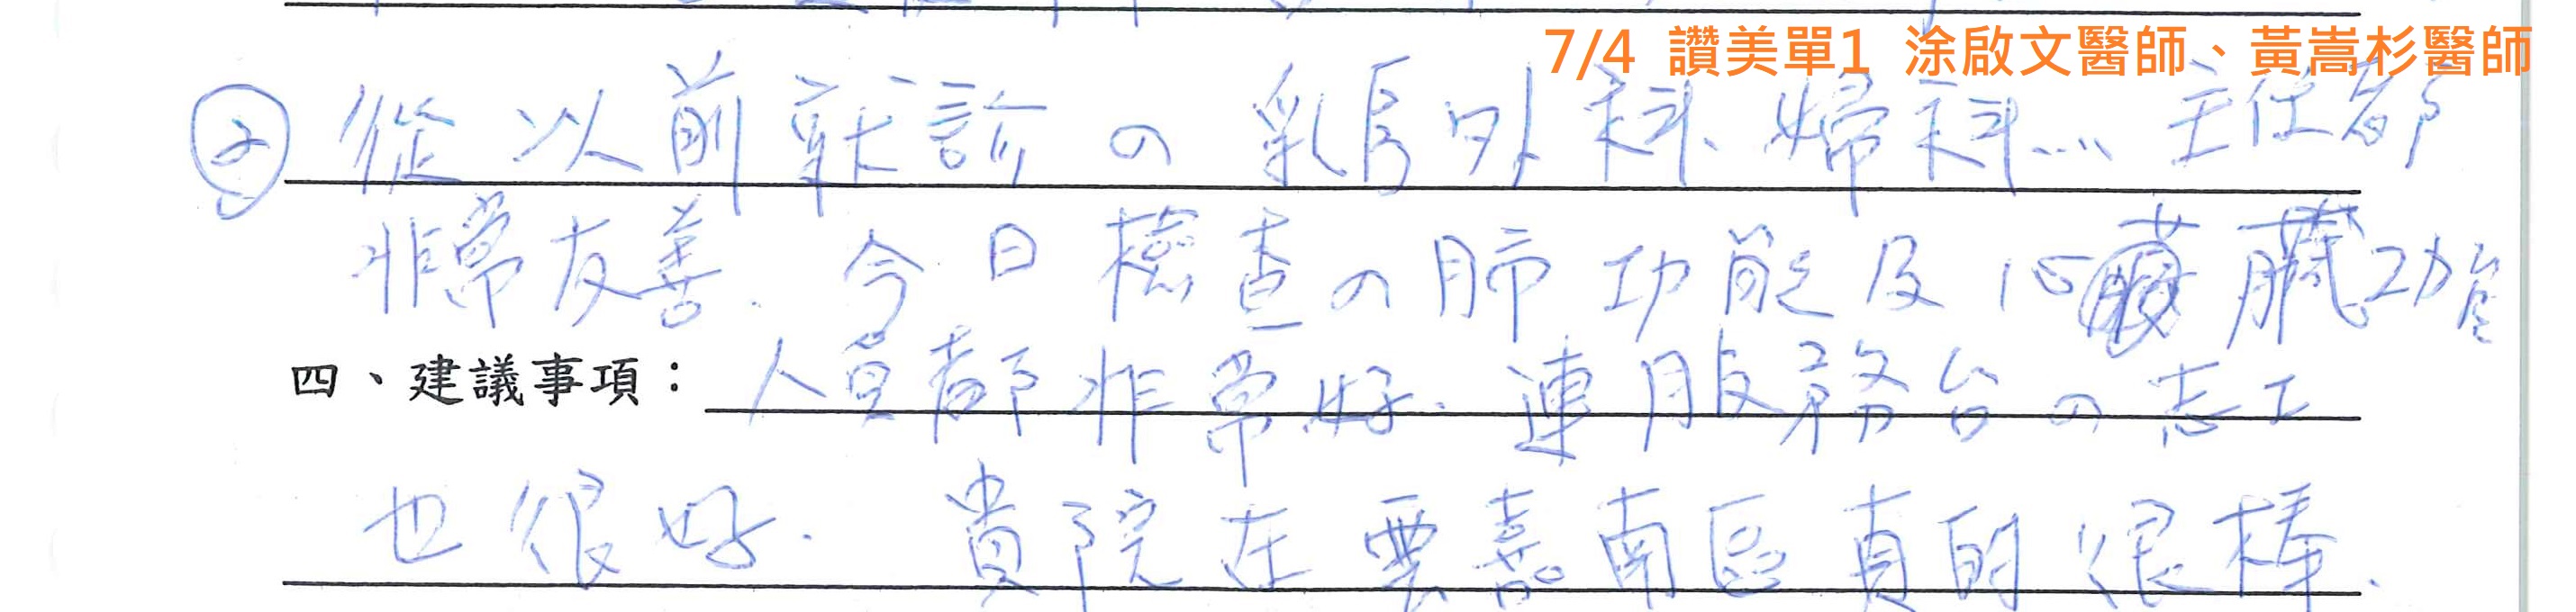 7/4 讚美單1 涂啟文醫師、黃嵩杉醫師
② 從以前就診の乳房外科、婦科... 主任都
非常友善. 今日檢查の肺功能及心臟功能
四、建議事項：人員都非常好. 連服務台の志工
也很好. 貴院在雲嘉南區真的很棒.